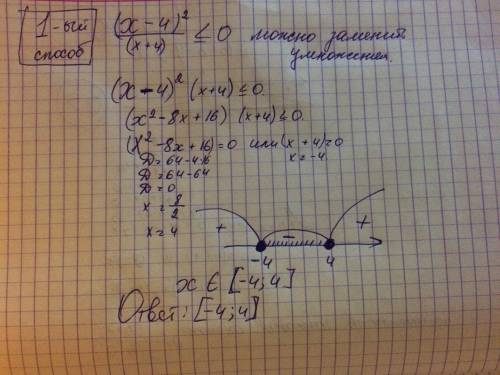 1-ый способ (x-4)²/(x+4) ≤ 0 можно заменить
умножением.
(x-4)² (x+4) ≤ 0.
(x²-8x+16) (x+4) ≤ 0.
(x²-8x+16)=0 или (x+4)=0
Д=64-4·16 x=-4
Д=64-64
Д=0
x=8/2
x=4
+ - +
-4 4
x ∈ [-4;4]
Ответ: [-4;4]